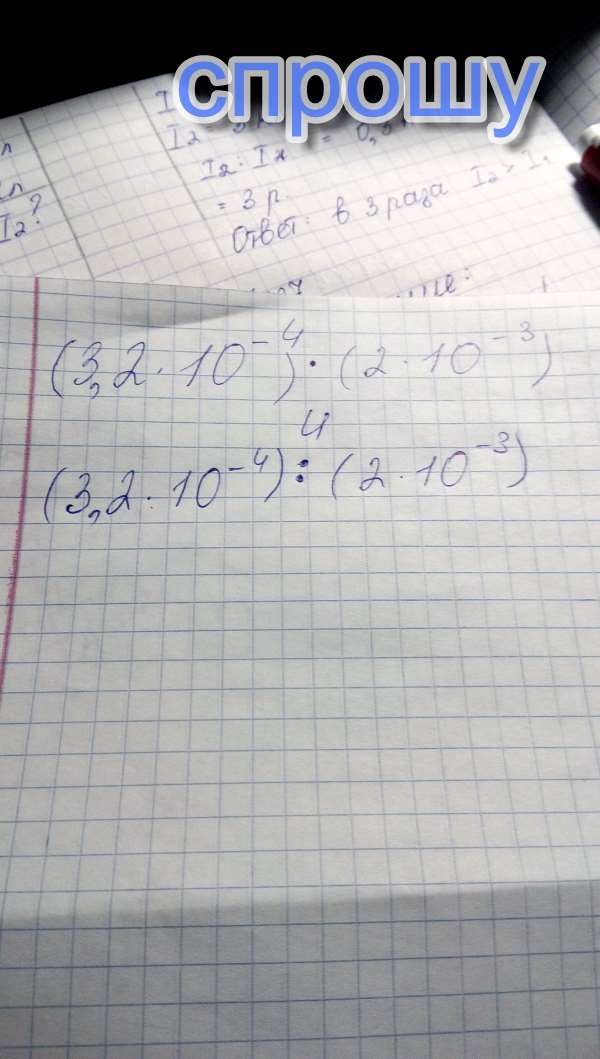 спрошу
I
I₂
I₂ : I₁ = 0,
= 3 р.
Ответ: в 3 раза I₂ > I₁
л
I₂?
(3,2 · 10⁻⁴) · (2 · 10⁻³)
и
(3,2 · 10⁻⁴) : (2 · 10⁻³)